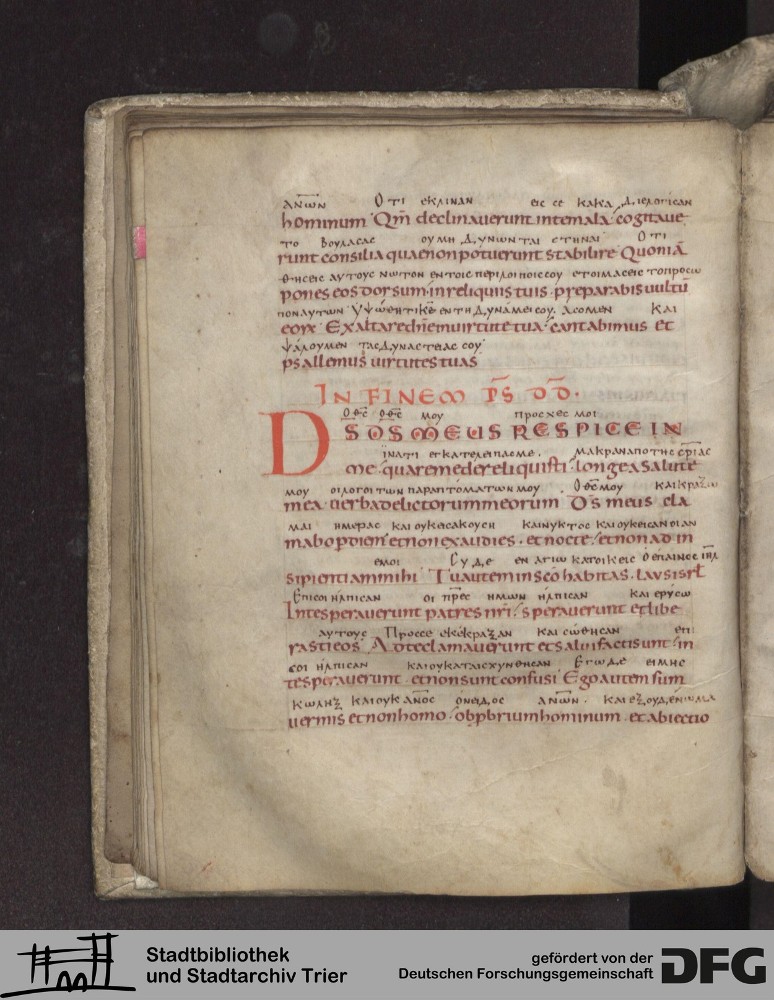 ΑΝ̅ΩΝ Ο ΤΙ ΕΚΛΙΝΑΝ ΕΙC CΕ ΚΑΚΑ ΔΙΕΛΟΓΙCΑΝ
hominum Qm̅ declinauerunt intemala cogitaue
ΤΟ ΒΟΥΛΑCΑC ΟΥ ΜΗ ΔΥΝΩΝΤΑΙ CΤΗΝΑΙ ΟΤΙ
runt consilia quaenonpotuerunt stabilire Quoniā
ΘΗCΕΙC ΑΥΤΟΥC ΝΩΤΟΝ ΕΝ ΤΟΙC ΠΕΡΙΛΟΙΠΟΙC CΟΥ ΕΤΟΙΜΑCΕΙC ΤΟ ΠΡΟCΩ
pones eos dorsum inreliquiis tuis preparabis uultū
ΠΟΝ ΑΥΤΩΝ ΥΨΩΘΗΤΙ ΚΕ̅ ΕΝ ΤΗ ΔΥΝΑΜΕΙ CΟΥ ΑCΟΜΕΝ ΚΑΙ
eorx Exaltare dn̅e inuirtute tua cantabimus et
ΨΑΛΟΥΜΕΝ ΤΑC ΔΥΝΑCΤΕΙΑC CΟΥ
psallemus uirtutes tuas
IN FINEM PS̅ DD̅.
ΟΘC̅ ΟΘC̅ ΜΟΥ ΠΡΟCΧΕC ΜΟΙ
DS̅ DS̅ MEUS RESPICE IN
ΙΝΑΤΙ ΕΓΚΑΤΕΛΕΙΠΑC ΜΕ. ΜΑΚΡΑΝ ΑΠΟ ΤΗC CΡ̅ΙΑC
me quare me dereliquisti longe a salute
ΜΟΥ ΟΙ ΛΟΓΟΙ ΤΩΝ ΠΑΡΑΠΤΟΜΑΤΩΝ ΜΟΥ ΟΘC̅ ΜΟΥ ΚΑΙ ΚΡΑΞΩ
mea uerba delictorum meorum Ds̅ meus cla
ΜΑΙ ΗΜΕΡΑC ΚΑΙ ΟΥΚ ΕΙCΑΚΟΥCΗ ΚΑΙ ΝΥΚΤΟC ΚΑΙ ΟΥΚ ΕΙC ΑΝΟΙΑΝ
mabo perdiem et non exaudies et nocte et non ad in
ΕΜΟΙ CΥ ΔΕ ΕΝ ΑΓΙΩ ΚΑΤΟΙΚΕΙC Ο ΕΠΑΙΝΟC ΙΗ̅Λ
sipientiam mihi Tu autem in sc̅o habitas laus isrl̅
ΕΠΙ CΟΙ ΗΛΠΙCΑΝ ΟΙ ΠΡ̅ΕC ΗΜΩΝ ΗΛΠΙCΑΝ ΚΑΙ ΕΡΥCΩ
In te sperauerunt patres nr̅i sperauerunt et libe
ΑΥΤΟΥC ΠΡΟC CΕ ΕΚΕΚΡΑΞΑΝ ΚΑΙ CΩΘΗCΑΝ ΕΠΙ
rasti eos Ad te clamauerunt et salui facti sunt in
CΟΙ ΗΛΠΙCΑΝ ΚΑΙ ΟΥ ΚΑΤΑΙCΧΥΝΘΗCΑΝ ΕΓΩ ΔΕ ΕΙΜΗC
te sperauerunt et non sunt confusi Ego autem sum
ΚΩΛΗΞ ΚΑΙ ΟΥΚ ΑΝ̅ΟC ΟΝΕΙΔΟC ΑΝ̅ΩΝ ΚΑΙ ΕΞΟΥΔΕΝΩΜΑ
uermis et non homo obpbrium hominum et abiectio
Stadtbibliothek
und Stadtarchiv Trier
gefördert von der
Deutschen Forschungsgemeinschaft DFG